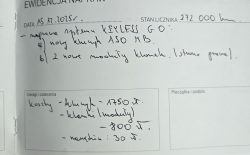 EWIDENCJA NAPRAW
DATA 15.XI.2025r. STAN LICZNIKA 272 000 km
- naprawa systemu KEYLESS GO:
nowy kluczyk 130 MB
2 nowe moduły klamek (strona prawa).
Uwagi i zalecenia
Pieczątka i podpis
koszty - kluczyk - 1750 zł.
- klamki (moduły)
- 800 zł.
- narzędzia: 30 zł.